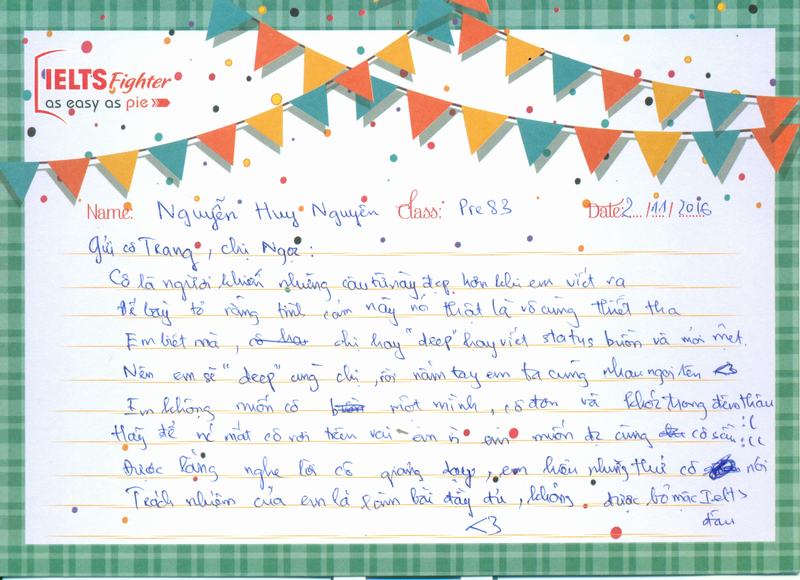 IELTS Fighter
as easy as pie
Name: Nguyễn Huy Nguyên Class: Pre83 Date: 2/11/2016
Gửi cô Trang, chị Ngọc:
Cô là người khiến những câu từ này đẹp hơn khi em viết ra
Để bày tỏ rằng tình cảm này nó thật là vô cùng thiết tha
Em biết mà, chị hay "deep" hay viết status buồn và mỏi mệt.
Nên em sẽ "deep" cùng chị, rồi nắm tay em ta cùng nhau ngoi lên <3
Em không muốn cô một mình, cô đơn và khóc trong đêm thâu
Hãy để nước mắt cô rơi trên vai em vì em muốn đc cùng cô sầu :( :((
Được lắng nghe lời cô giảng dạy, em hiểu những thứ cô nói
Trách nhiệm của em là làm bài đầy đủ, không được bỏ mặc Ielts
đâu
<3